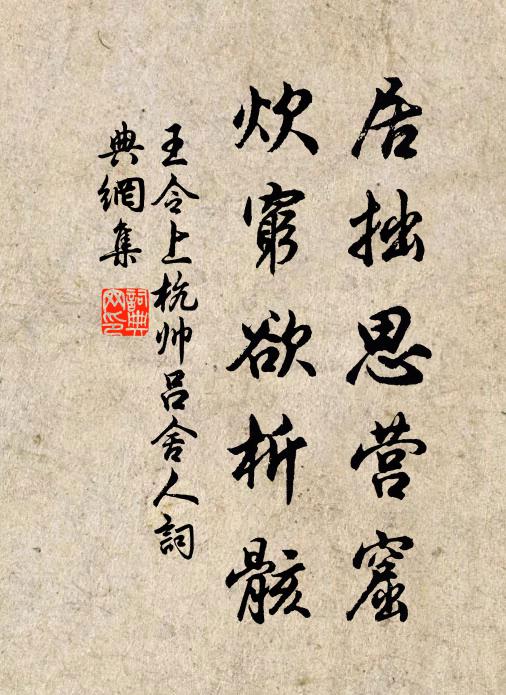 居拙思营窟
炊窮欲析骸
王令上杭帅吕舍人詞
典網集
詞典
网印